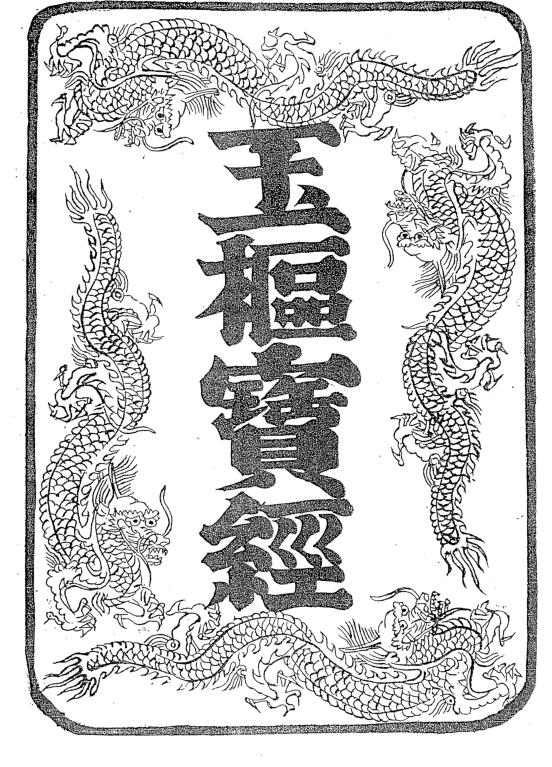 玉樞寶經